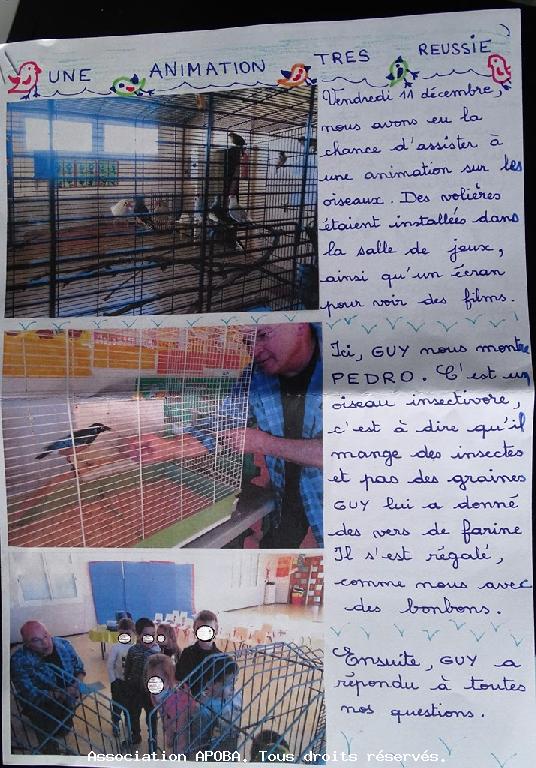 UNE ANIMATION TRES REUSSIE
Vendredi 11 décembre,
nous avons eu la
chance d'assister à
une animation sur les
oiseaux. Des volières
étaient installées dans
la salle de jeux,
ainsi qu'un écran
pour voir des films.
Ici, GUY nous montre
PEDRO. C'est un
oiseau insectivore,
c'est à dire qu'il
mange des insectes
et pas des graines
GUY lui a donné
des vers de farine
Il s'est régalé,
comme nous avec
des bonbons.
Ensuite, GUY a
répondu à toutes
nos questions.
Association APOBA. Tous droits réservés.